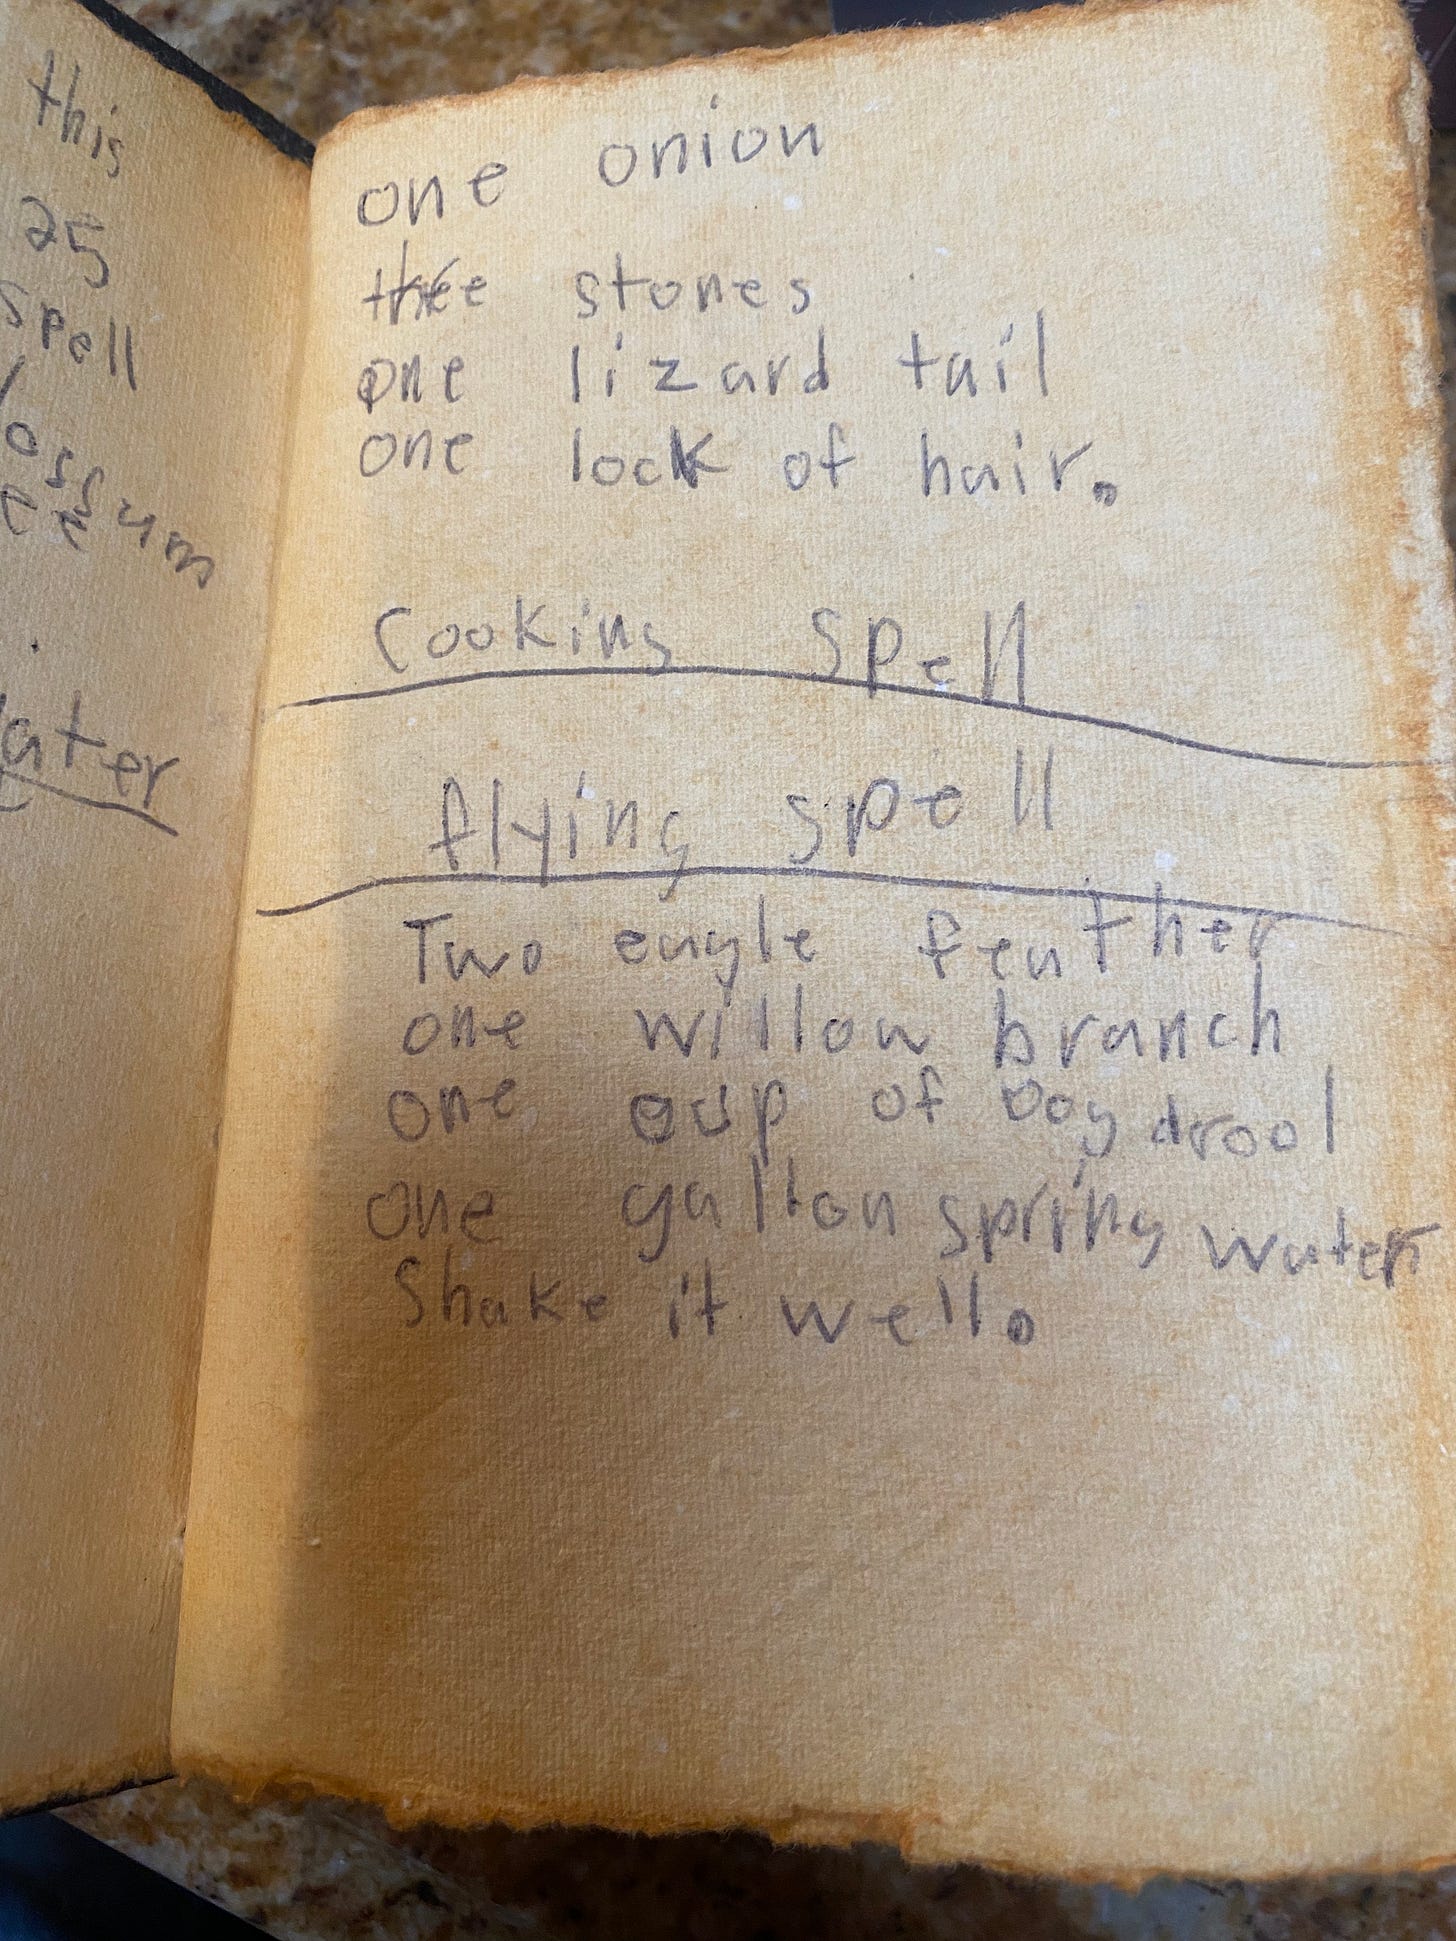 this
25
spell
ossum
ater
one onion
thee stones
one lizard tail
one lock of hair.
Cooking spell
flying spell
Two eagle feather
one willow branch
one cup of Dog drool
one gallon spring water
Shake it well.